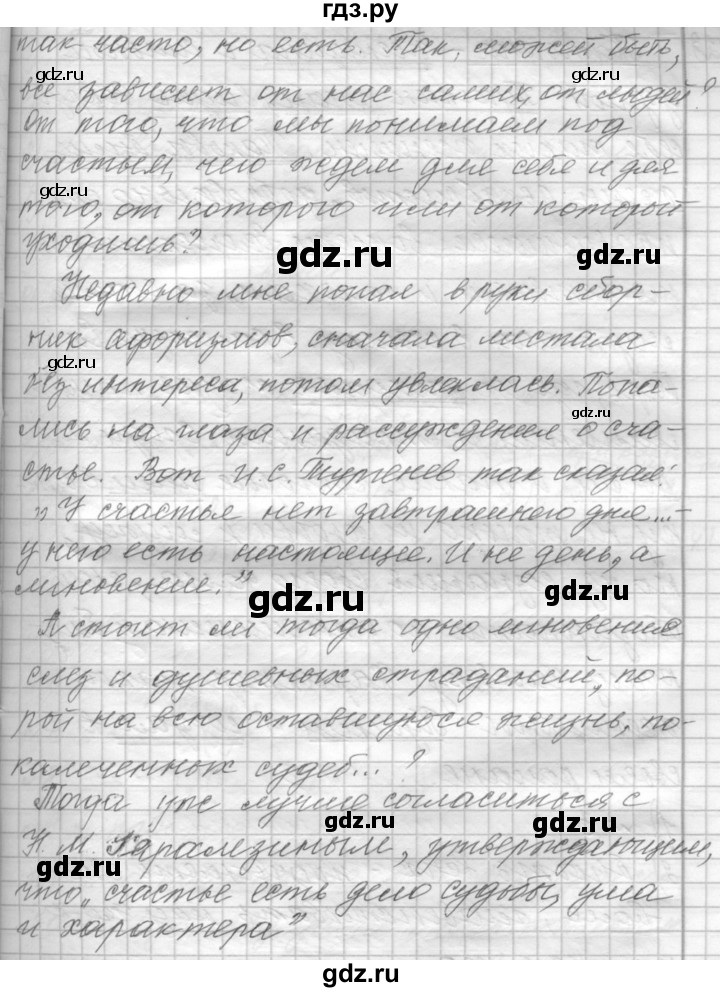 гдз.ру
так часто, но есть. Так, может быть,
все зависит от нас самих, от людей?
От того, что мы понимаем под
счастьем, чего ждем для себя и для
того, от которого или от который
уходишь?
Недавно мне попал в руки сбор-
ник афоризмов, сначала листала
без интереса, потом увлеклась. Попа-
лись на глаза и рассуждения о сча-
стье. Вот И.С. Тургенев так сказал:
„У счастья нет завтрашнего дня...-
у него есть настоящее. И не день, а
мгновение."
А стоит ли тогда одно мгновение
слез и душевных страданий, по-
рой на всю оставшуюся жизнь, по-
калеченных судеб...?
Тогда уж лучше согласиться с
Н.М. Карамзиным, утверждающим,
что „счастье есть дело судьбы, ума
и характера"
gdz.ru
gdz.ru
gdz.ru
gdz.ru
gdz.ru
gdz.ru
gdz.ru
gdz.ru
gdz.ru
gdz.ru
gdz.ru
gdz.ru
gdz.ru
gdz.ru